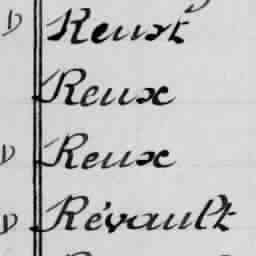 D Reuxt
Reux
D Reux
D Révault